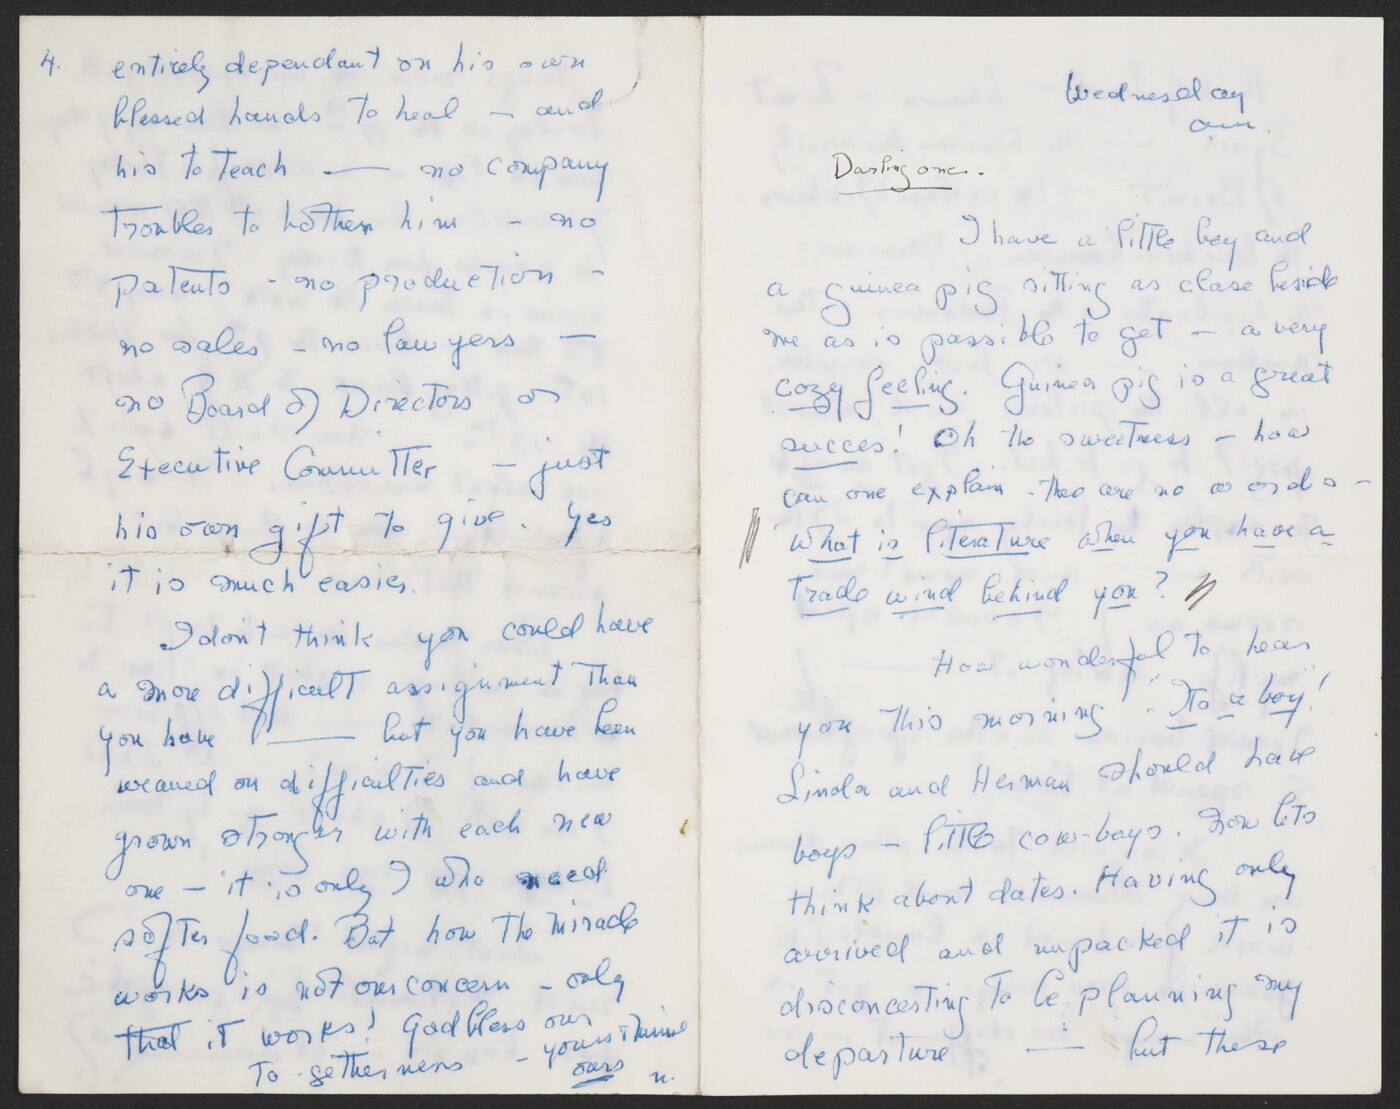 4. entirely dependant on his own
blessed hands to heal — and
his to teach — no company
troubles to bother him — no
patents - no production -
no sales - no lawyers —
no Board of Directors or
Executive Committer — just
his own gift to give. Yes
it is much easier.
I don't think you could have
a more difficult assignment than
you have — but you have been
weaned on difficulties and have
grown stronger with each new
one — it is only I who need
softer food. But how the miracle
works is not our concern - only
that it works! God bless our
to-getherness - yours + mine
ours n.
Wednesday
am.
Darling one.
I have a little boy and
a guinea pig sitting as close beside
me as is possible to get — a very
cozy feeling. Guinea pig is a great
succes! Oh the sweetness — how
can one explain - there are no words -
" What is literature when you have a
trade wind behind you? "
How wonderful to hear
you this morning - "Its a boy!"
Linda and Herman should have
boys — little cow-boys. Now lets
think about dates. Having only
arrived and unpacked it is
disconcerting to be planning my
departure — but these